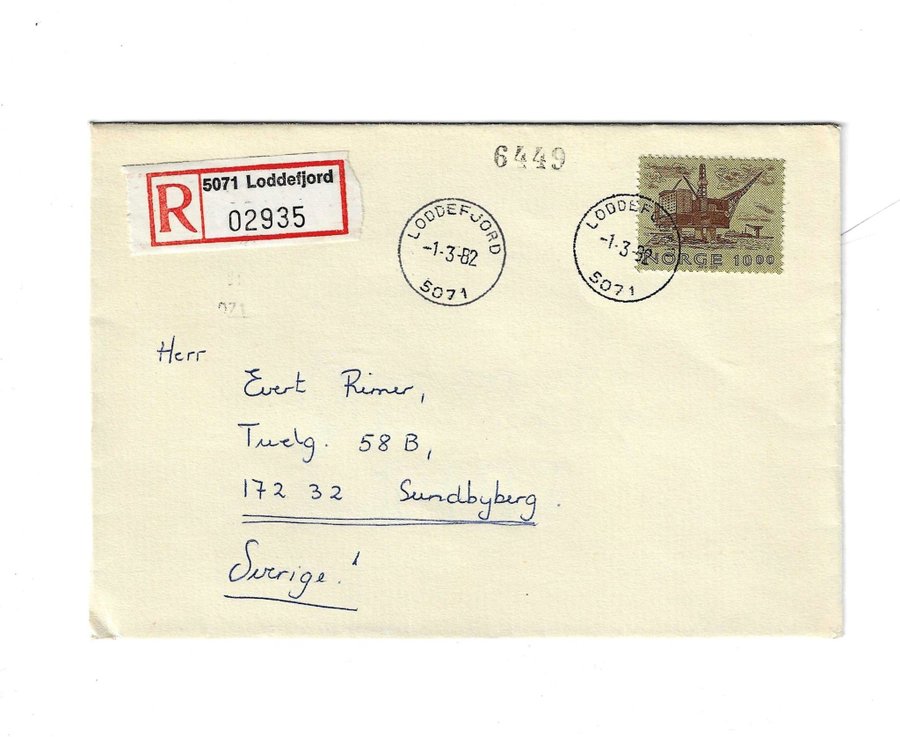 6449
R 5071 Loddefjord
02935
LODDEFJORD
-1-3-82
5071
LODDEFJORD
-1-3-82
5071
NORGE 1000
071
Herr
Evert Rimer,
58 B,
172 32 Sundbyberg.
Sverige!